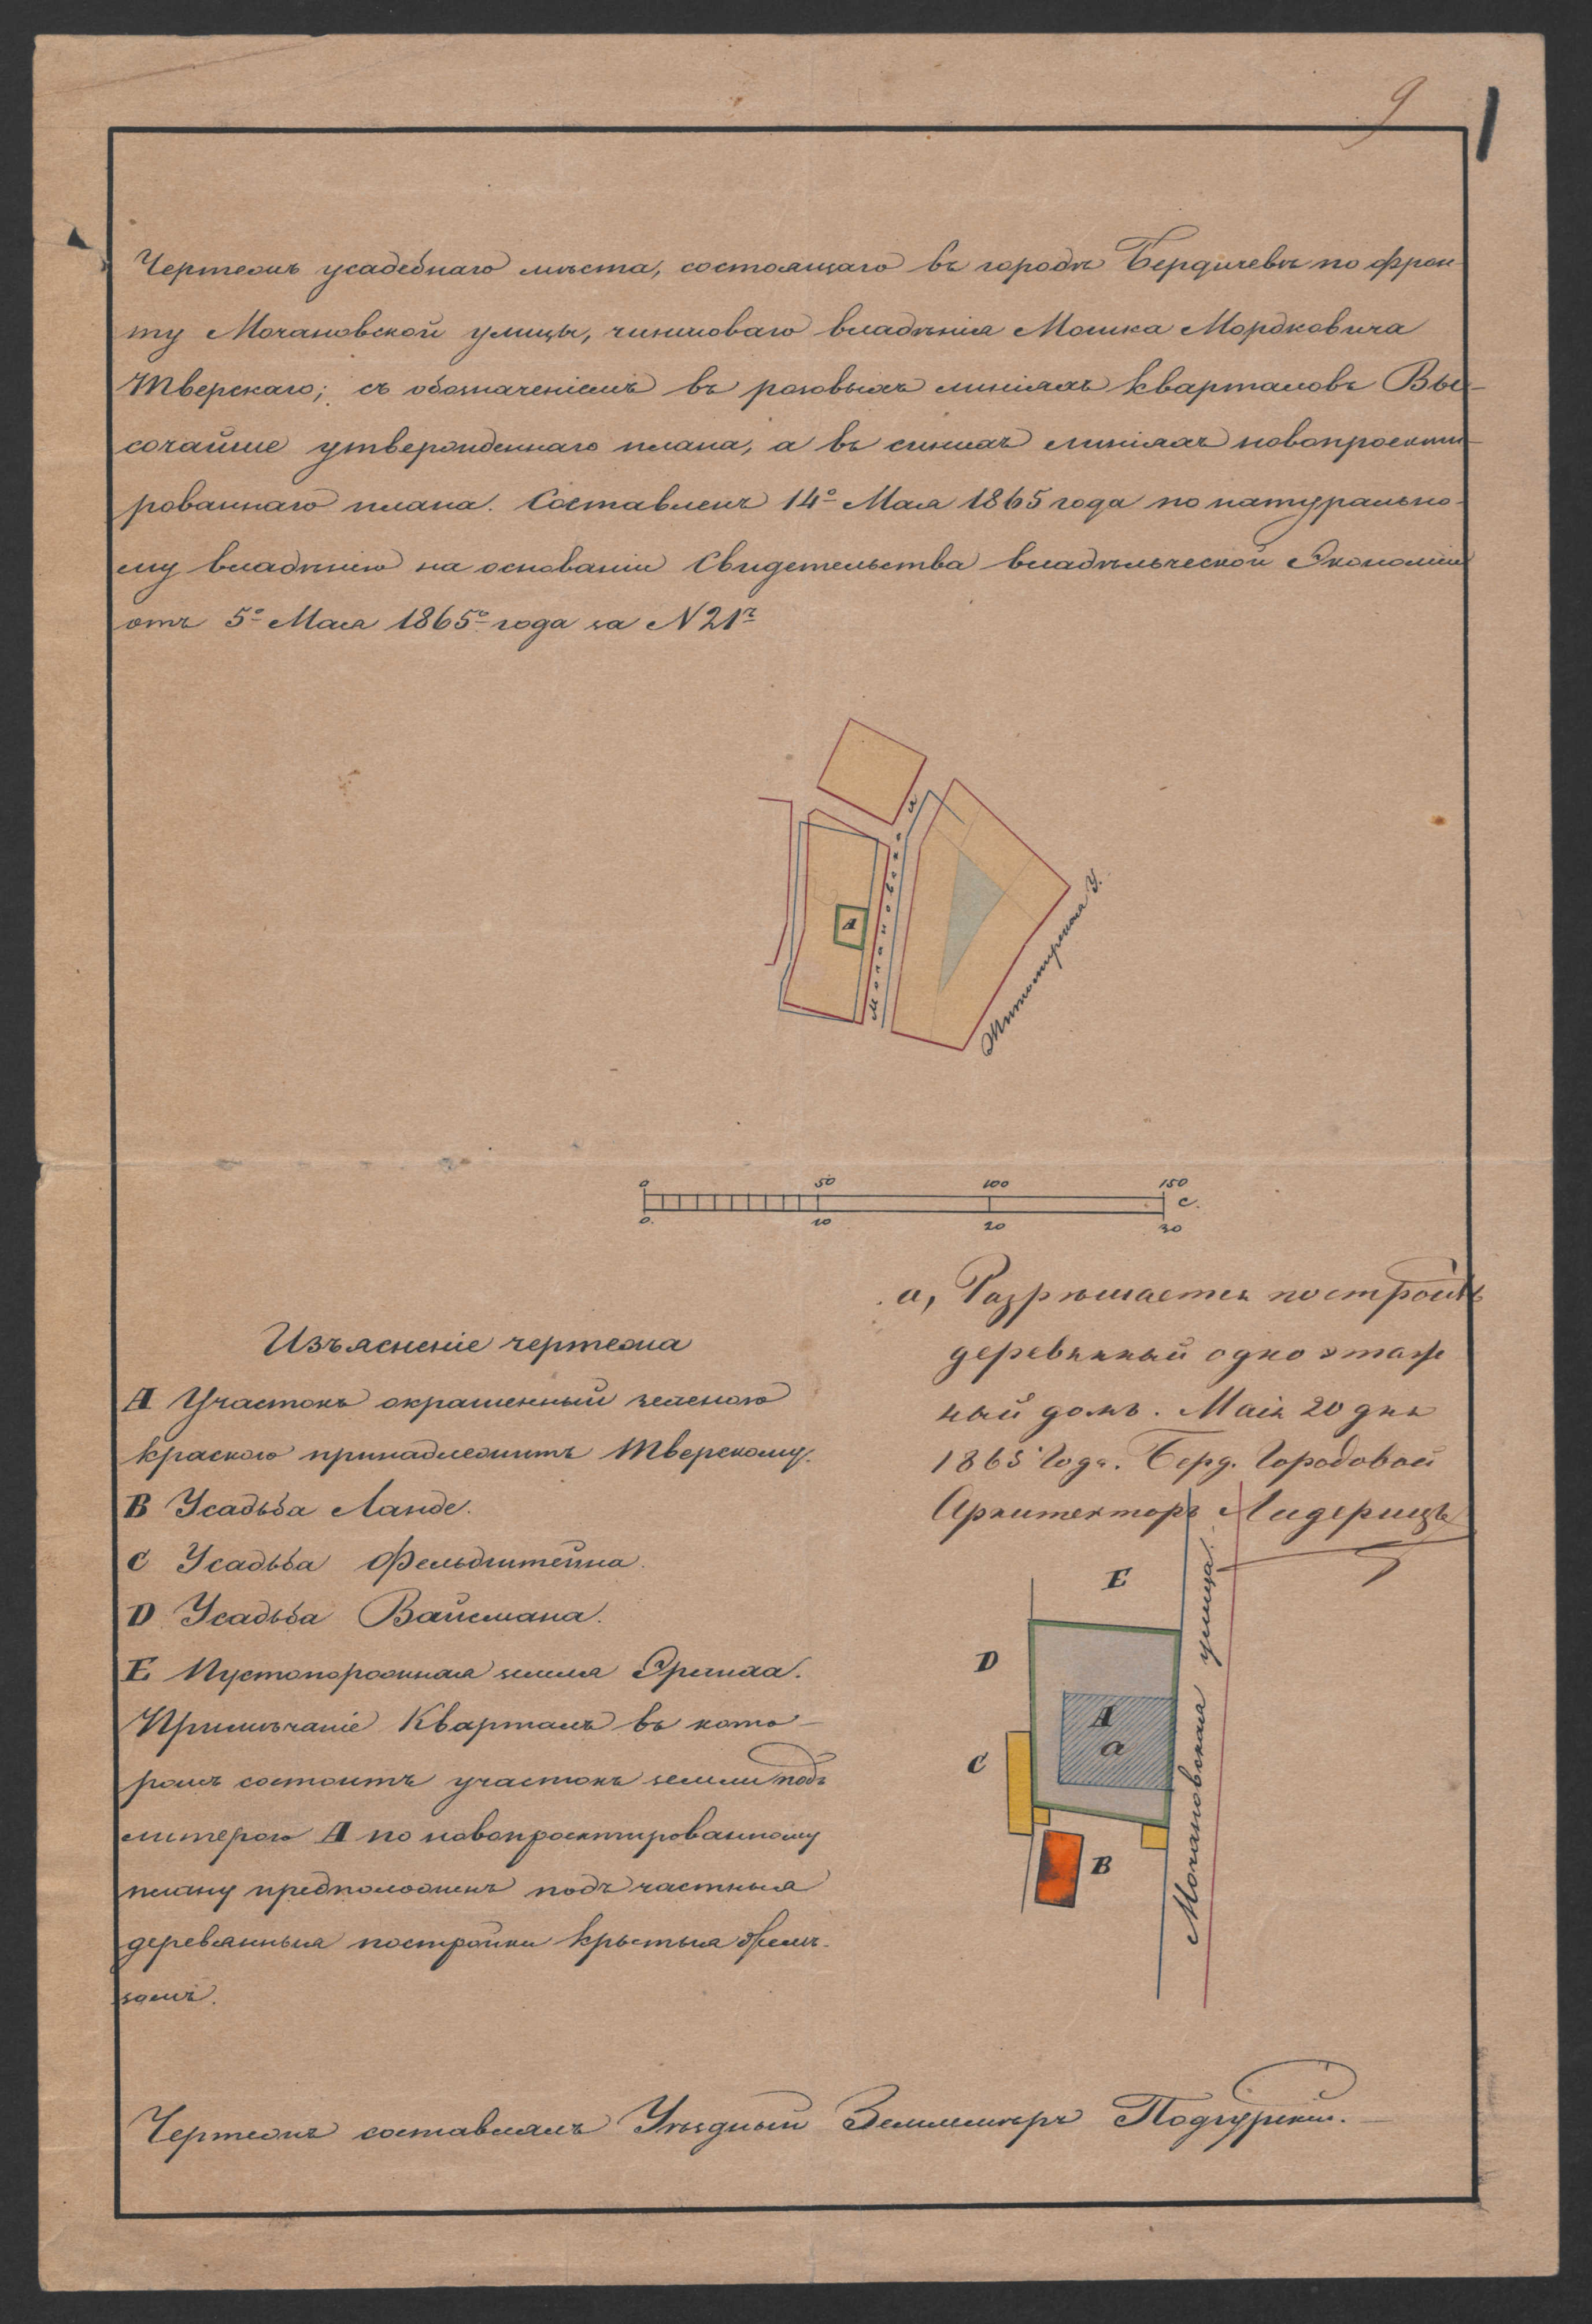 9
Чертежъ усадебнаго мѣста, состоящаго въ городѣ Бердичевѣ по фрон-
ту Мочановской улицы, чиншоваго владѣнія Мошка Мордковича
Тверскаго; съ обозначеніемъ въ розовыхъ линіяхъ кварталовъ Вы-
сочайше утвержденнаго плана, а въ синихъ линіяхъ новопроекти-
рованнаго плана. Составленъ 14º Мая 1865 года по натурально-
му владѣнію на основаніи Свидетельства владѣльческой Экономіи
отъ 5º Мая 1865º года за N 21ъ
А
Мочановска у
Житомирская У.
0 50 100 150
с.
0. 10 20 30
а, Разрѣшается построить
деревянный одно этаж
ный домъ. Маія 20 дня
1865 Года. Берд. Городовой
Архитекторъ Лидерицъ
Изъясненіе чертежа
А Участокъ окрашенный зеленою
краскою принадлежитъ Тверскому.
В Усадьба Ланде.
С Усадьба Фельдштейна.
D Усадьба Вайсмана.
Е Пустопорожная земля
Примѣчаніе Кварталъ въ кото-
ромъ состоитъ участокъ земли подъ
литерою А по новопроектированному
плану предположенъ подъ частныя
деревянныя постройки крытыя желѣ-
зомъ.
Е
D
А
а
С
В
Мочановская улица.
Чертежъ составлялъ Уѣздный Землемѣръ Подгурскій.